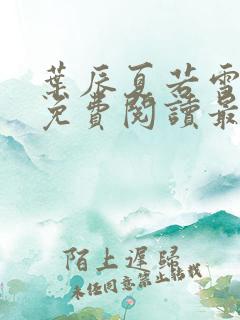 葉辰夏若雪
免費閱讀最
陌上遲歸
未任同意禁止轉載